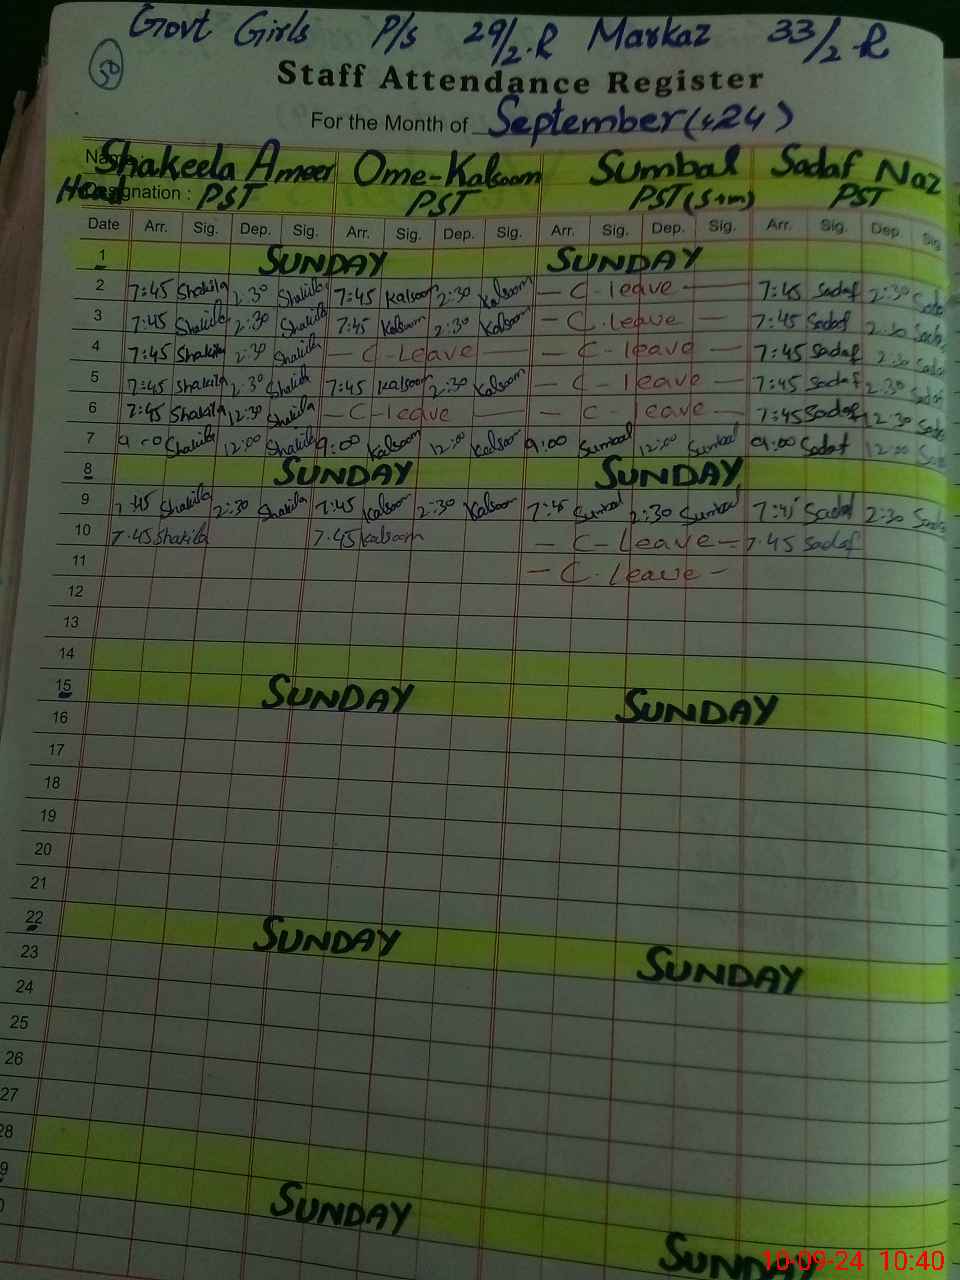 Govt Girls P/s 29/2-R Markaz 33/2-R
50
Staff Attendance Register
For the Month of September(2024)
Name Shakeela Ameer Ome-Kalsoom Sumbal Sadaf Naz
Head Designation : PST PST PST(S+m) PST
Date Arr. Sig. Dep. Sig. Arr. Sig. Dep. Sig. Arr. Sig. Dep. Sig. Arr. Sig. Dep. Sig.
1 SUNDAY SUNDAY
2 7:45 Shakila 2:30 Shakila 7:45 Kalsoom 2:30 Kalsoom - C-leave - 7:45 Sadaf 2:30 Sadaf
3 7:45 Shakila 2:30 Shakila 7:45 Kalsoom 2:30 Kalsoom - C.leave - 7:45 Sadaf 2:30 Sadaf
4 7:45 Shakila 2:30 Shakila - C-Leave - - C-leave - 7:45 Sadaf 2:30 Sadaf
5 7:45 Shakila 2:30 Shakila 7:45 Kalsoom 2:30 Kalsoom - C-leave - 7:45 Sadaf 2:30 Sadaf
6 7:45 Shakila 12:30 Shakila - C-leave - - C-leave - 7:45 Sadaf 12:30 Sadaf
7 9:00 Shakila 12:00 Shakila 9:00 Kalsoom 12:00 Kalsoom 9:00 Sumbal 12:00 Sumbal 9:00 Sadaf 12:00
8 SUNDAY SUNDAY
9 7:45 Shakila 2:30 Shakila 7:45 Kalsoom 2:30 Kalsoom 7:45 Sumbal 2:30 Sumbal 7:45 Sadaf 2:30 Sadaf
10 7.45 Shakila 7.45 Kalsoom - C-Leave - 7.45 Sadaf
11 - C.leave -
12
13
14
15 SUNDAY SUNDAY
16
17
18
19
20
21
22 SUNDAY SUNDAY
23
24
25
26
27
28
9 SUNDAY SUNDAY
0
10-09-24 10:40